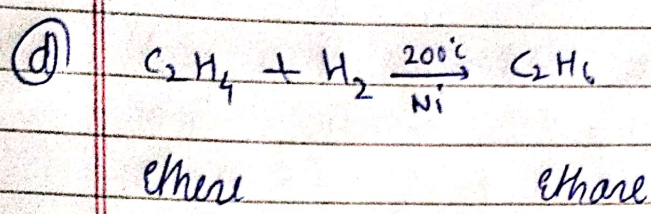 (d) C₂H₄ + H₂ —200°C/Ni→ C₂H₆
Ethene Ethane